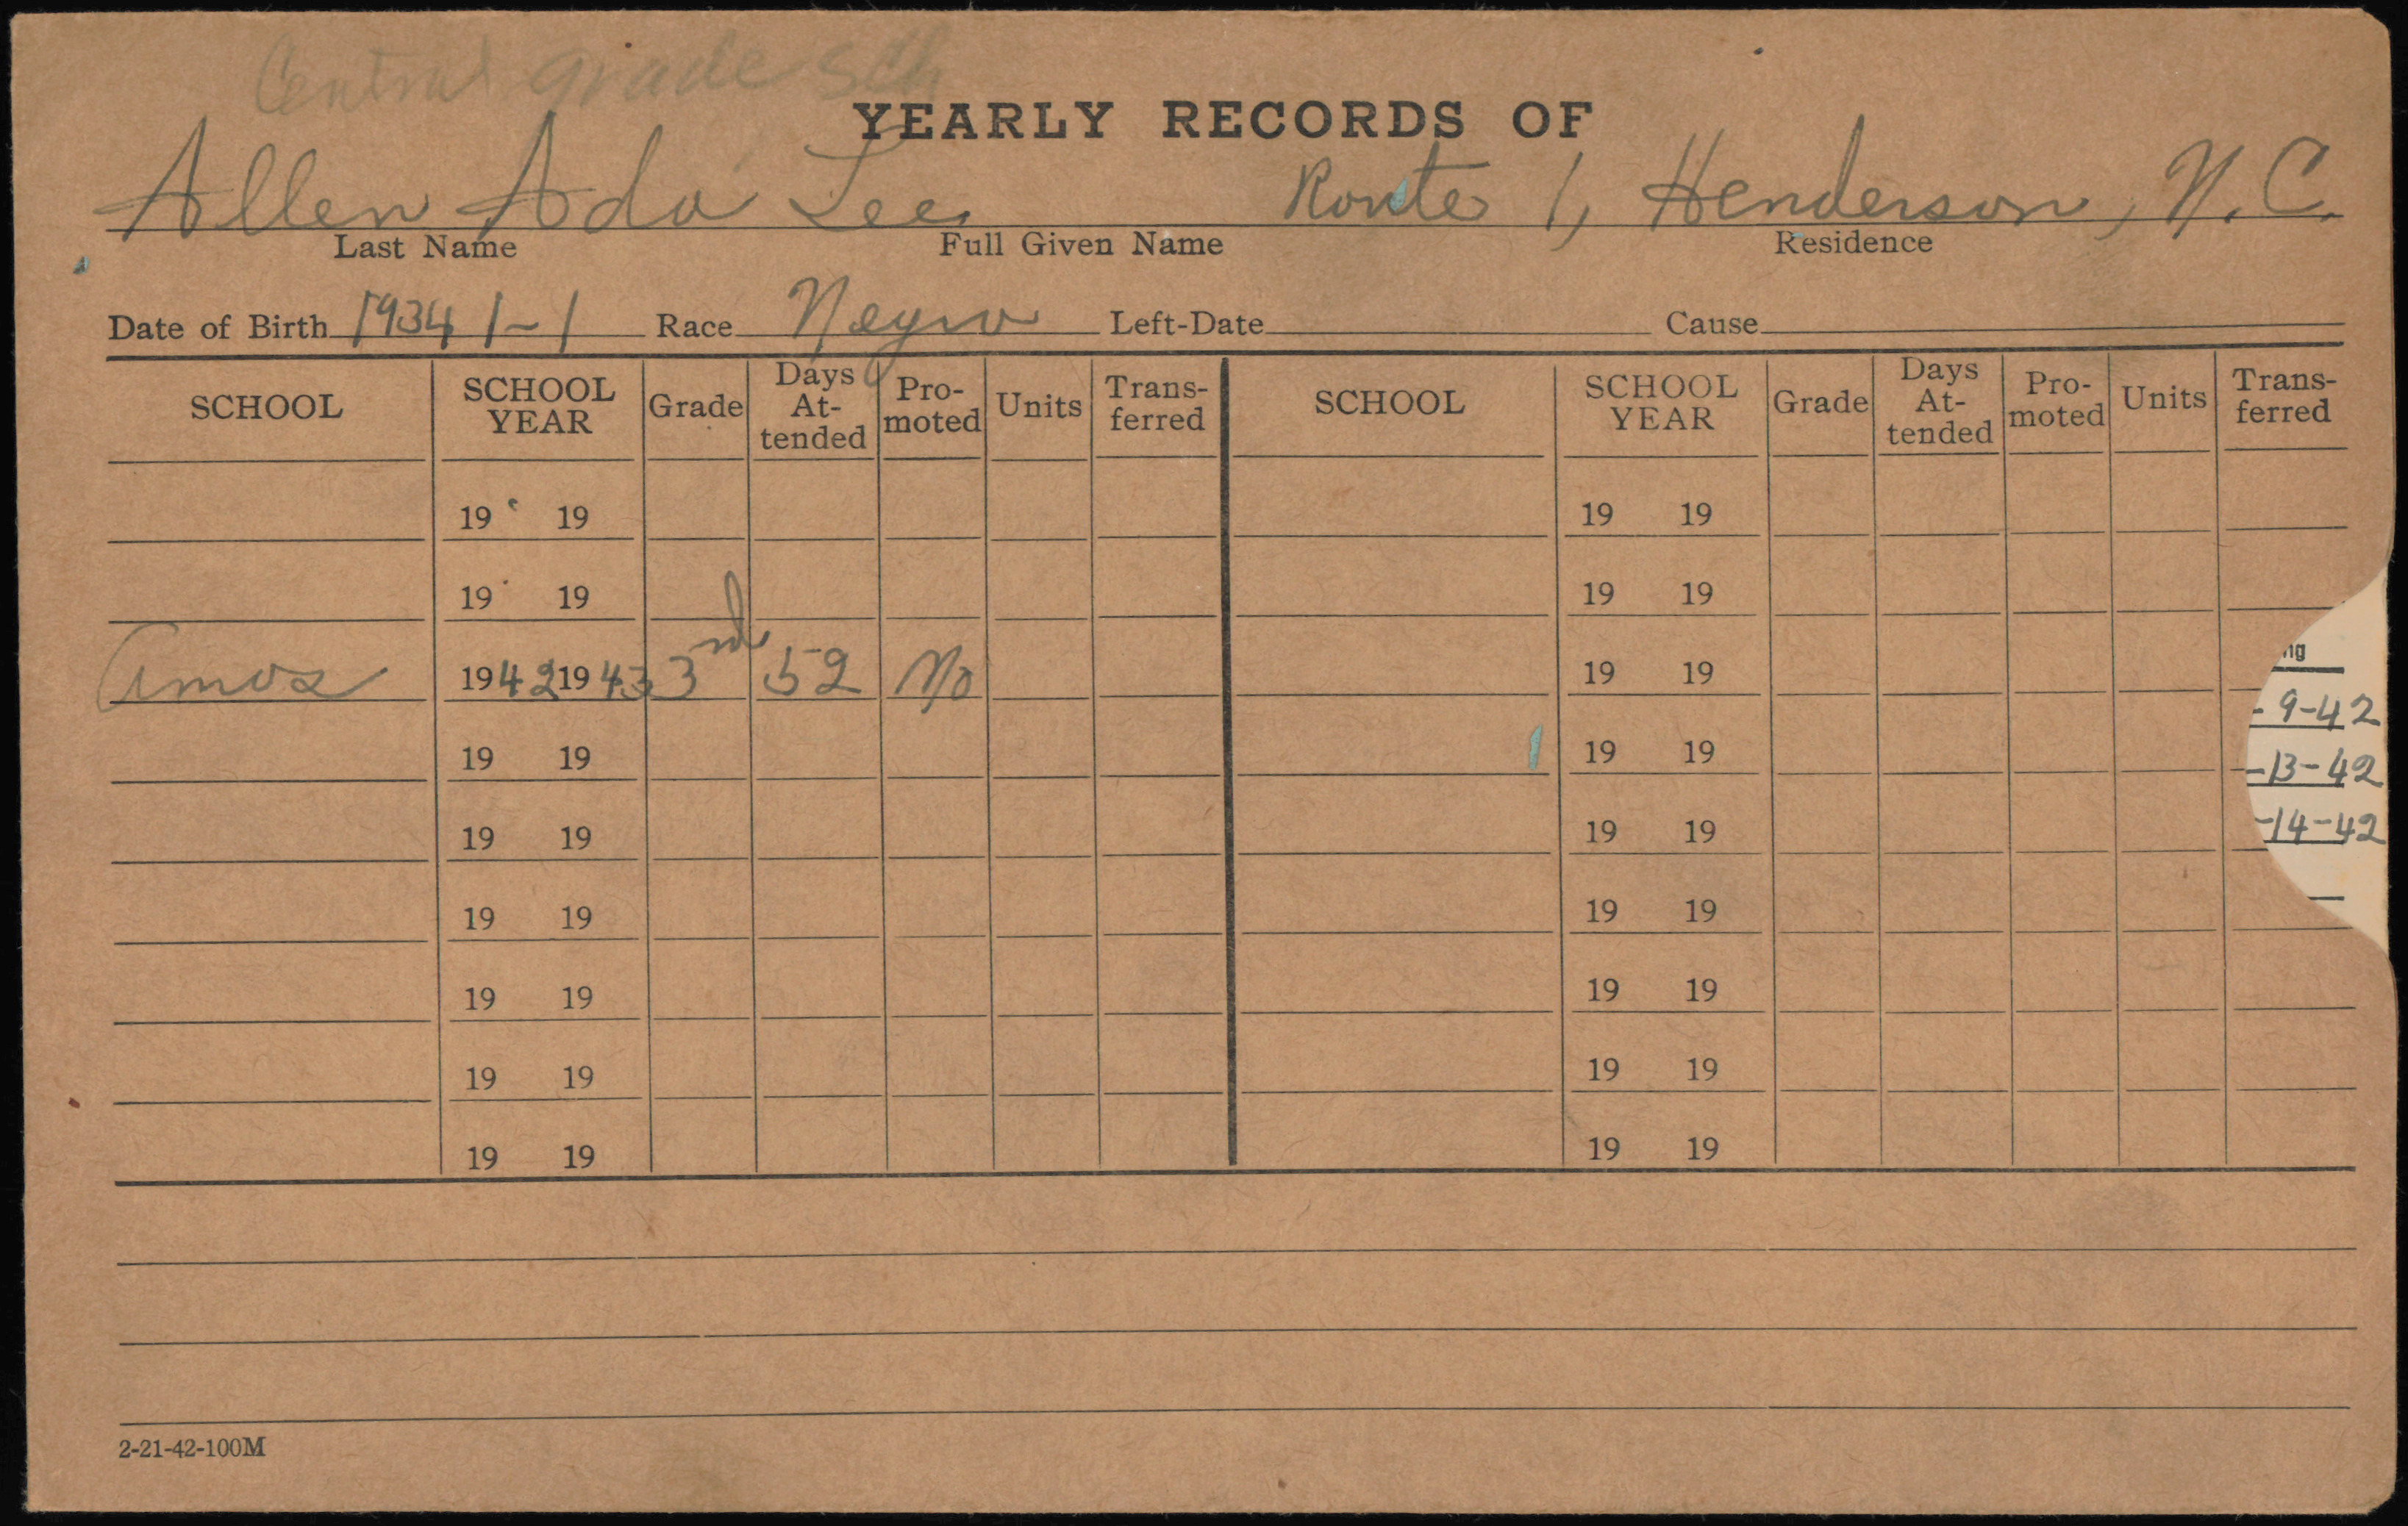 Central grade sch
YEARLY RECORDS OF
Allen Ada Lee Route 1, Henderson, N.C.
Last Name Full Given Name Residence
Date of Birth 1934 1-1 Race Negro Left-Date Cause
SCHOOL SCHOOL YEAR Grade Days At-tended Pro-moted Units Trans-ferred SCHOOL SCHOOL YEAR Grade Days At-tended Pro-moted Units Trans-ferred
19 19 19 19
19 19 19 19
Amos 1942 1943 3rd 52 No 19 19
ng
- 9-42
19 19 19 19
-13-42
19 19 19 19
-14-42
19 19 19 19
19 19 19 19
19 19 19 19
19 19 19 19
2-21-42-100M